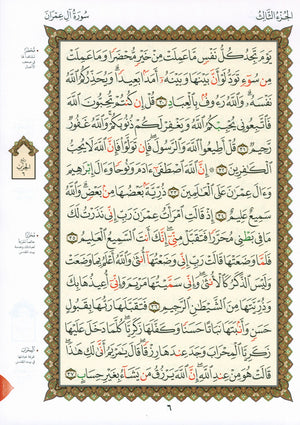 الجزء الثالث
سورة آل عمران
يَوْمَ تَجِدُ كُلُّ نَفْسٍ مَّا عَمِلَتْ مِنْ خَيْرٍ مُّحْضَرًا وَمَا عَمِلَتْ
مِن سُوءٍ تَوَدُّ لَوْ أَنَّ بَيْنَهَا وَبَيْنَهُ أَمَدًا بَعِيدًا وَيُحَذِّرُكُمُ اللَّهُ
نَفْسَهُ وَاللَّهُ رَءُوفٌ بِالْعِبَادِ ٣٠ قُلْ إِن كُنتُمْ تُحِبُّونَ اللَّهَ
فَاتَّبِعُونِي يُحْبِبْكُمُ اللَّهُ وَيَغْفِرْ لَكُمْ ذُنُوبَكُمْ وَاللَّهُ غَفُورٌ
رَّحِيمٌ ٣١ قُلْ أَطِيعُوا اللَّهَ وَالرَّسُولَ فَإِن تَوَلَّوْا فَإِنَّ اللَّهَ لَا يُحِبُّ
الْكَافِرِينَ ٣٢ إِنَّ اللَّهَ اصْطَفَى آدَمَ وَنُوحًا وَآلَ إِبْرَاهِيمَ
وَآلَ عِمْرَانَ عَلَى الْعَالَمِينَ ٣٣ ذُرِّيَّةً بَعْضُهَا مِن بَعْضٍ وَاللَّهُ
سَمِيعٌ عَلِيمٌ ٣٤ إِذْ قَالَتِ امْرَأَتُ عِمْرَانَ رَبِّ إِنِّي نَذَرْتُ لَكَ
مَا فِي بَطْنِي مُحَرَّرًا فَتَقَبَّلْ مِنِّي إِنَّكَ أَنتَ السَّمِيعُ الْعَلِيمُ ٣٥
فَلَمَّا وَضَعَتْهَا قَالَتْ رَبِّ إِنِّي وَضَعْتُهَا أُنثَى وَاللَّهُ أَعْلَمُ بِمَا وَضَعَتْ
وَلَيْسَ الذَّكَرُ كَالْأُنثَى وَإِنِّي سَمَّيْتُهَا مَرْيَمَ وَإِنِّي أُعِيذُهَا بِكَ
وَذُرِّيَّتَهَا مِنَ الشَّيْطَانِ الرَّجِيمِ ٣٦ فَتَقَبَّلَهَا رَبُّهَا بِقَبُولٍ
حَسَنٍ وَأَنبَتَهَا نَبَاتًا حَسَنًا وَكَفَّلَهَا زَكَرِيَّا كُلَّمَا دَخَلَ عَلَيْهَا
زَكَرِيَّا الْمِحْرَابَ وَجَدَ عِندَهَا رِزْقًا قَالَ يَا مَرْيَمُ أَنَّى لَكِ هَذَا
قَالَتْ هُوَ مِنْ عِندِ اللَّهِ إِنَّ اللَّهَ يَرْزُقُ مَن يَشَاءُ بِغَيْرِ حِسَابٍ ٣٧
٦